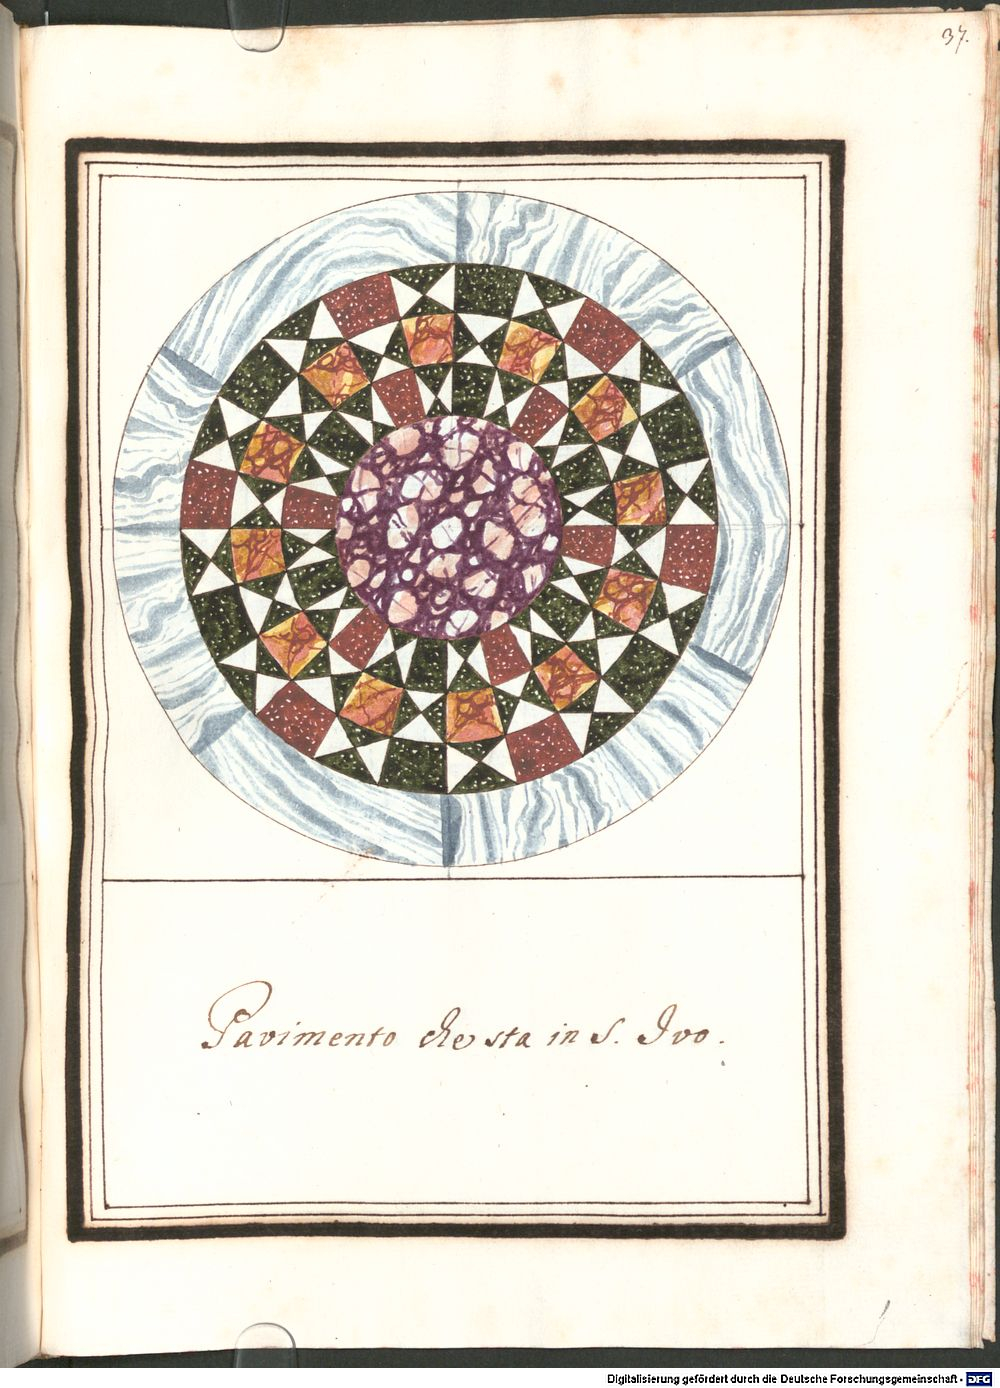 37.
Pavimento che sta in S. Ivo.
Digitalisierung gefördert durch die Deutsche Forschungsgemeinschaft - DFG